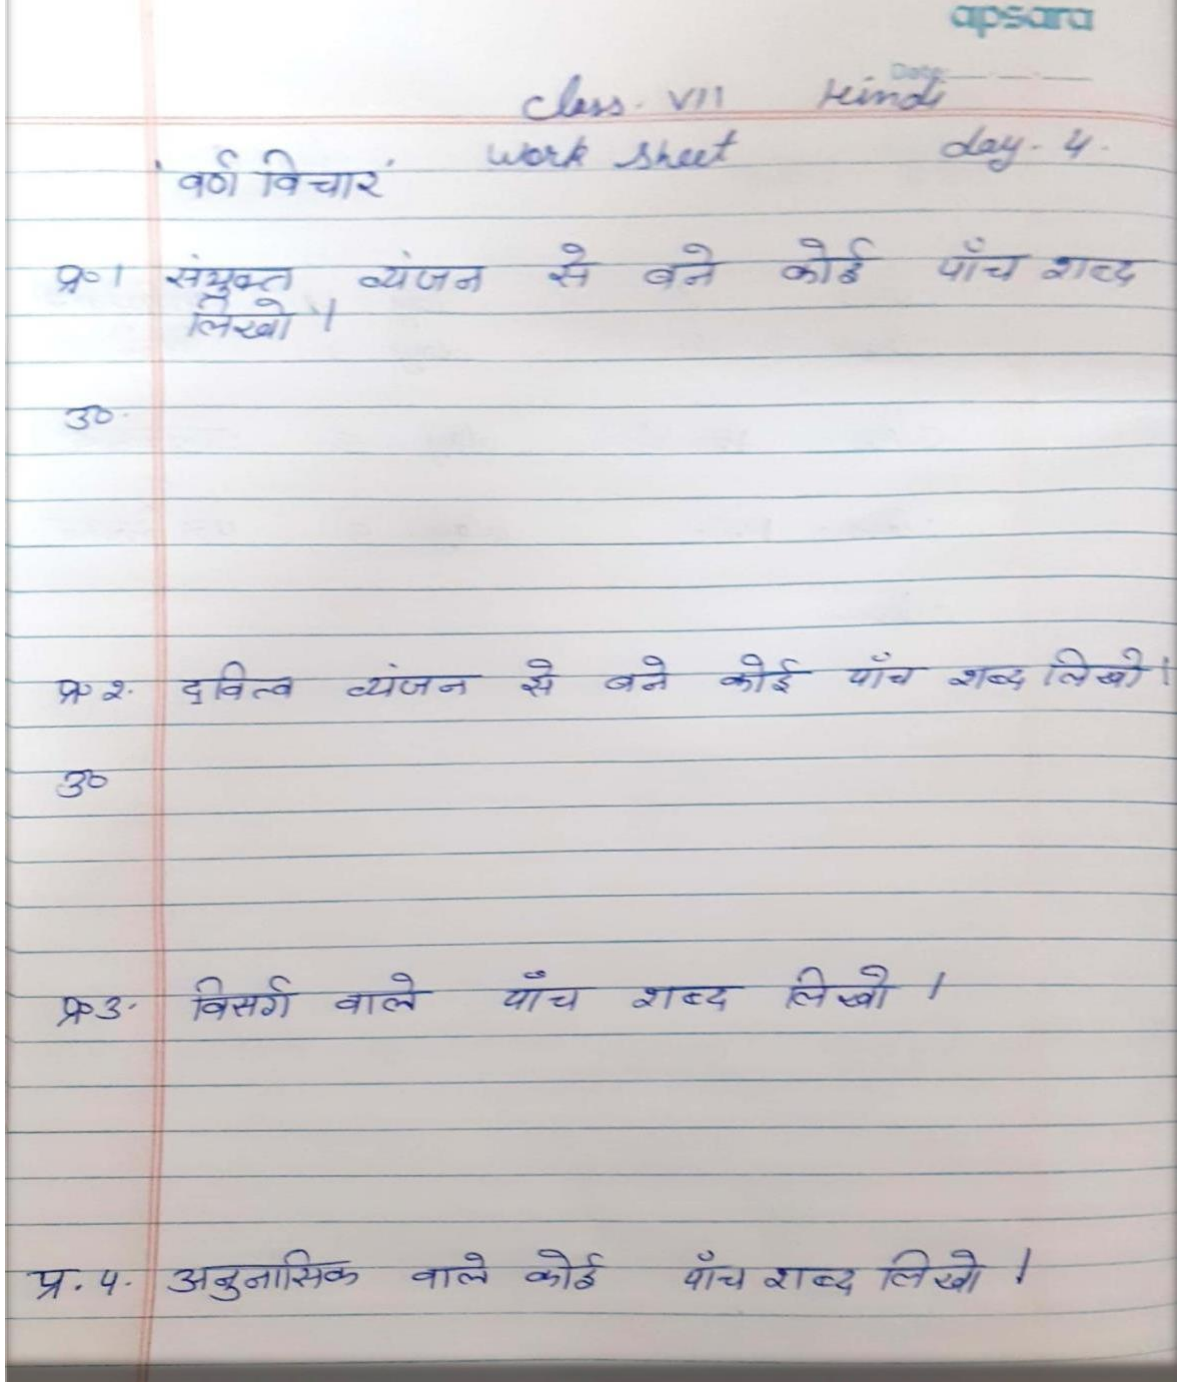 apsara
Date
Class. VII Hindi
Work Sheet day. 4.
'वर्ण विचार'
प्र०1 संयुक्त व्यंजन से बने कोई पाँच शब्द
लिखो।
उ०.
प्र०२. द्वित्व व्यंजन से बने कोई पाँच शब्द लिखो।
उ०
प्र०३. विसर्ग वाले पाँच शब्द लिखो।
प्र.4. अनुनासिक वाले कोई पाँच शब्द लिखो।